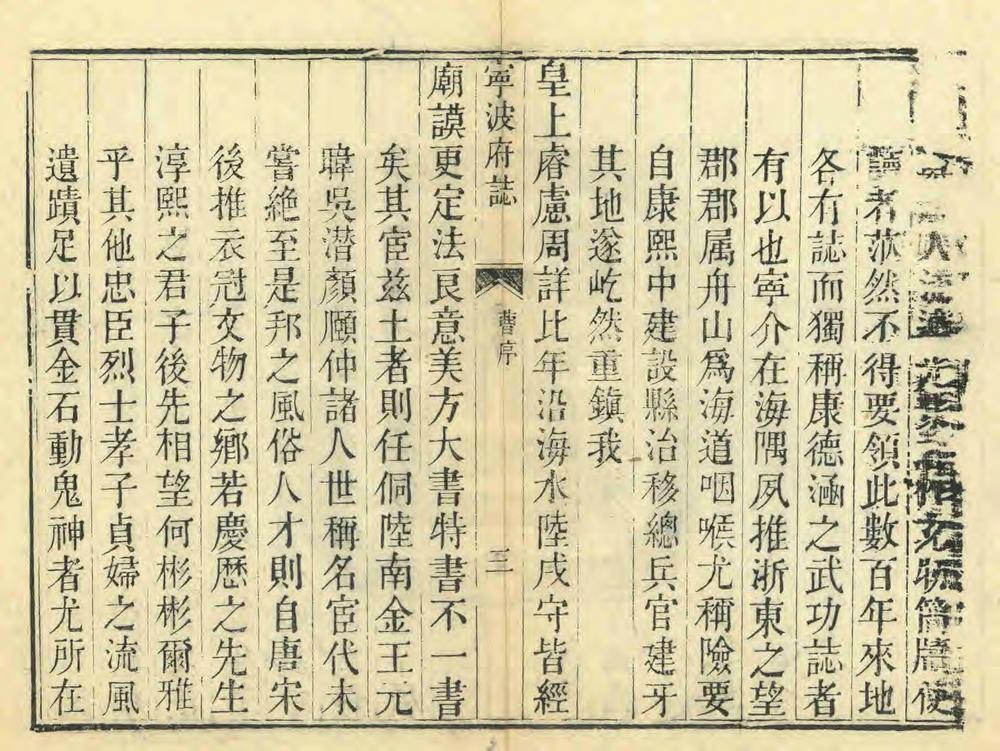 充牣簡牘使
讀者茫然不得要領此數百年來地
各有誌而獨稱康德涵之武功誌者
有以也寧介在海隅夙推浙東之望
郡郡属舟山爲海道咽喉尤稱險要
自康熙中建設縣治移總兵官建牙
其地遂屹然重鎮我
皇上睿慮周詳比年沿海水陸戍守皆經
寧波府誌
曹序
三
廟謨更定法良意美方大書特書不一書
矣其宦兹土者則任侗陸南金王元
暐吳潜顏頤仲諸人世稱名宦代未
嘗絶至是邦之風俗人才則自唐宋
後推衣冠文物之鄉若慶歷之先生
淳熙之君子後先相望何彬彬爾雅
乎其他忠臣烈士孝子貞婦之流風
遺蹟足以貫金石動鬼神者尤所在